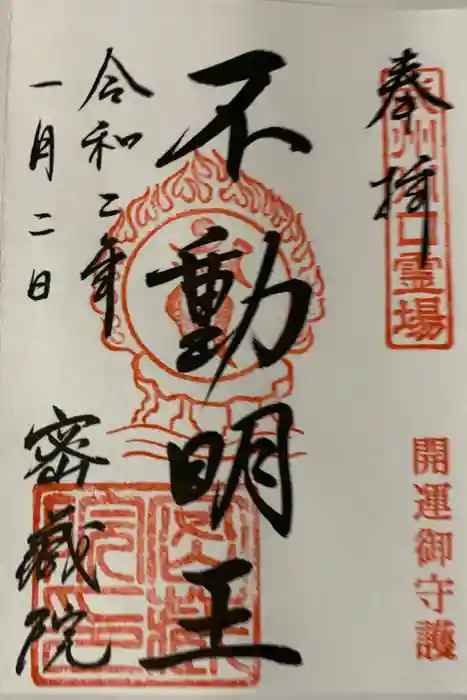 奉拝
武州川口霊場
開運御守護
不動明王
令和二年
一月二日
密蔵院